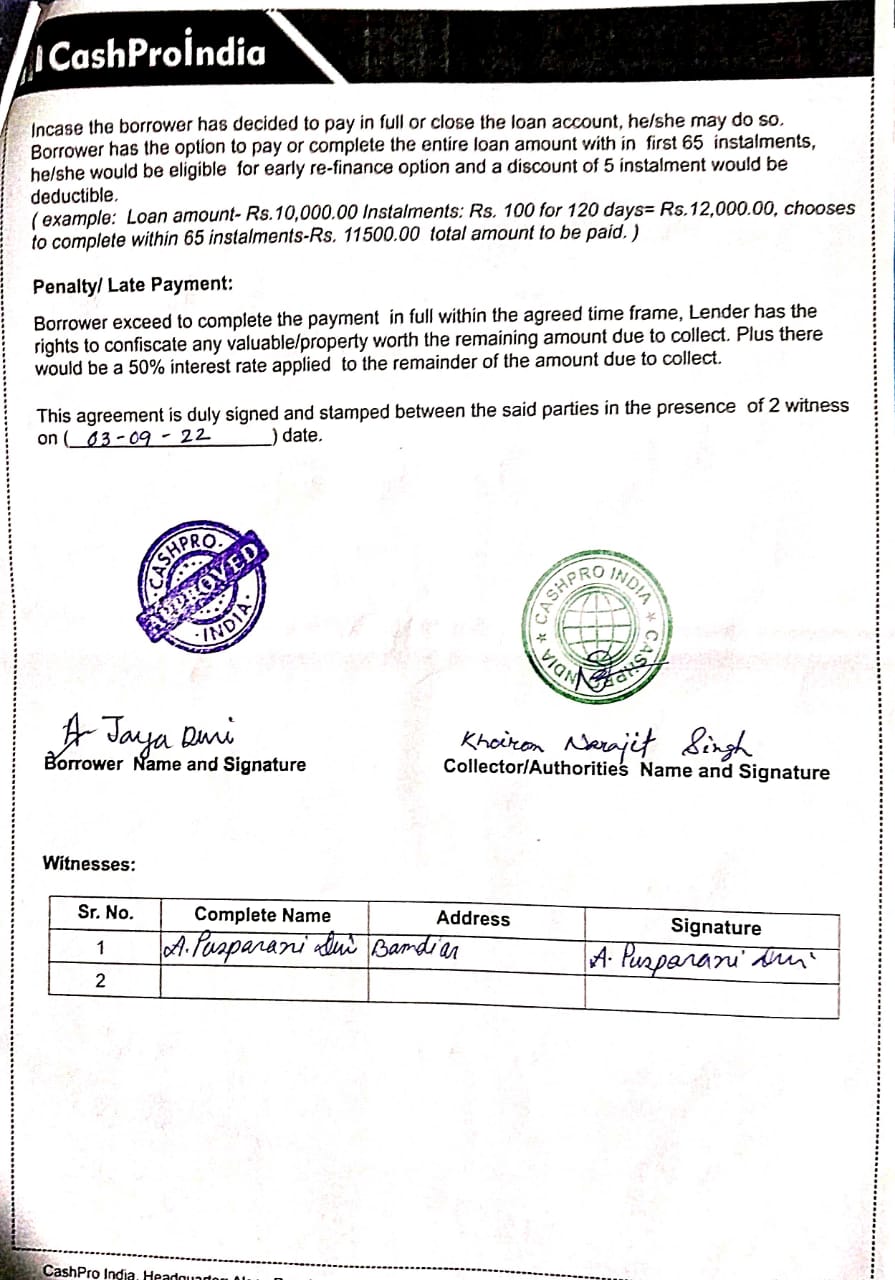 CashProİndia
Incase the borrower has decided to pay in full or close the loan account, he/she may do so.
Borrower has the option to pay or complete the entire loan amount with in first 65 instalments,
he/she would be eligible for early re-finance option and a discount of 5 instalment would be
deductible.
( example: Loan amount- Rs.10,000.00 Instalments: Rs. 100 for 120 days= Rs.12,000.00, chooses
to complete within 65 instalments-Rs. 11500.00 total amount to be paid. )
Penalty/ Late Payment:
Borrower exceed to complete the payment in full within the agreed time frame, Lender has the
rights to confiscate any valuable/property worth the remaining amount due to collect. Plus there
would be a 50% interest rate applied to the remainder of the amount due to collect.
This agreement is duly signed and stamped between the said parties in the presence of 2 witness
on ( 03-09-22 ) date.
CASHPRO
APPROVED
INDIA
CASHPRO INDIA ★ CASHPRO INDIA ★
A Jaya Devi
Khoirom Narajit Singh
Borrower Name and Signature
Collector/Authorities Name and Signature
Witnesses:
Sr. No. Complete Name Address Signature
1 A. Pusparani Devi Bamdiar A. Pusparani Devi
2
CashPro India, Headquarter